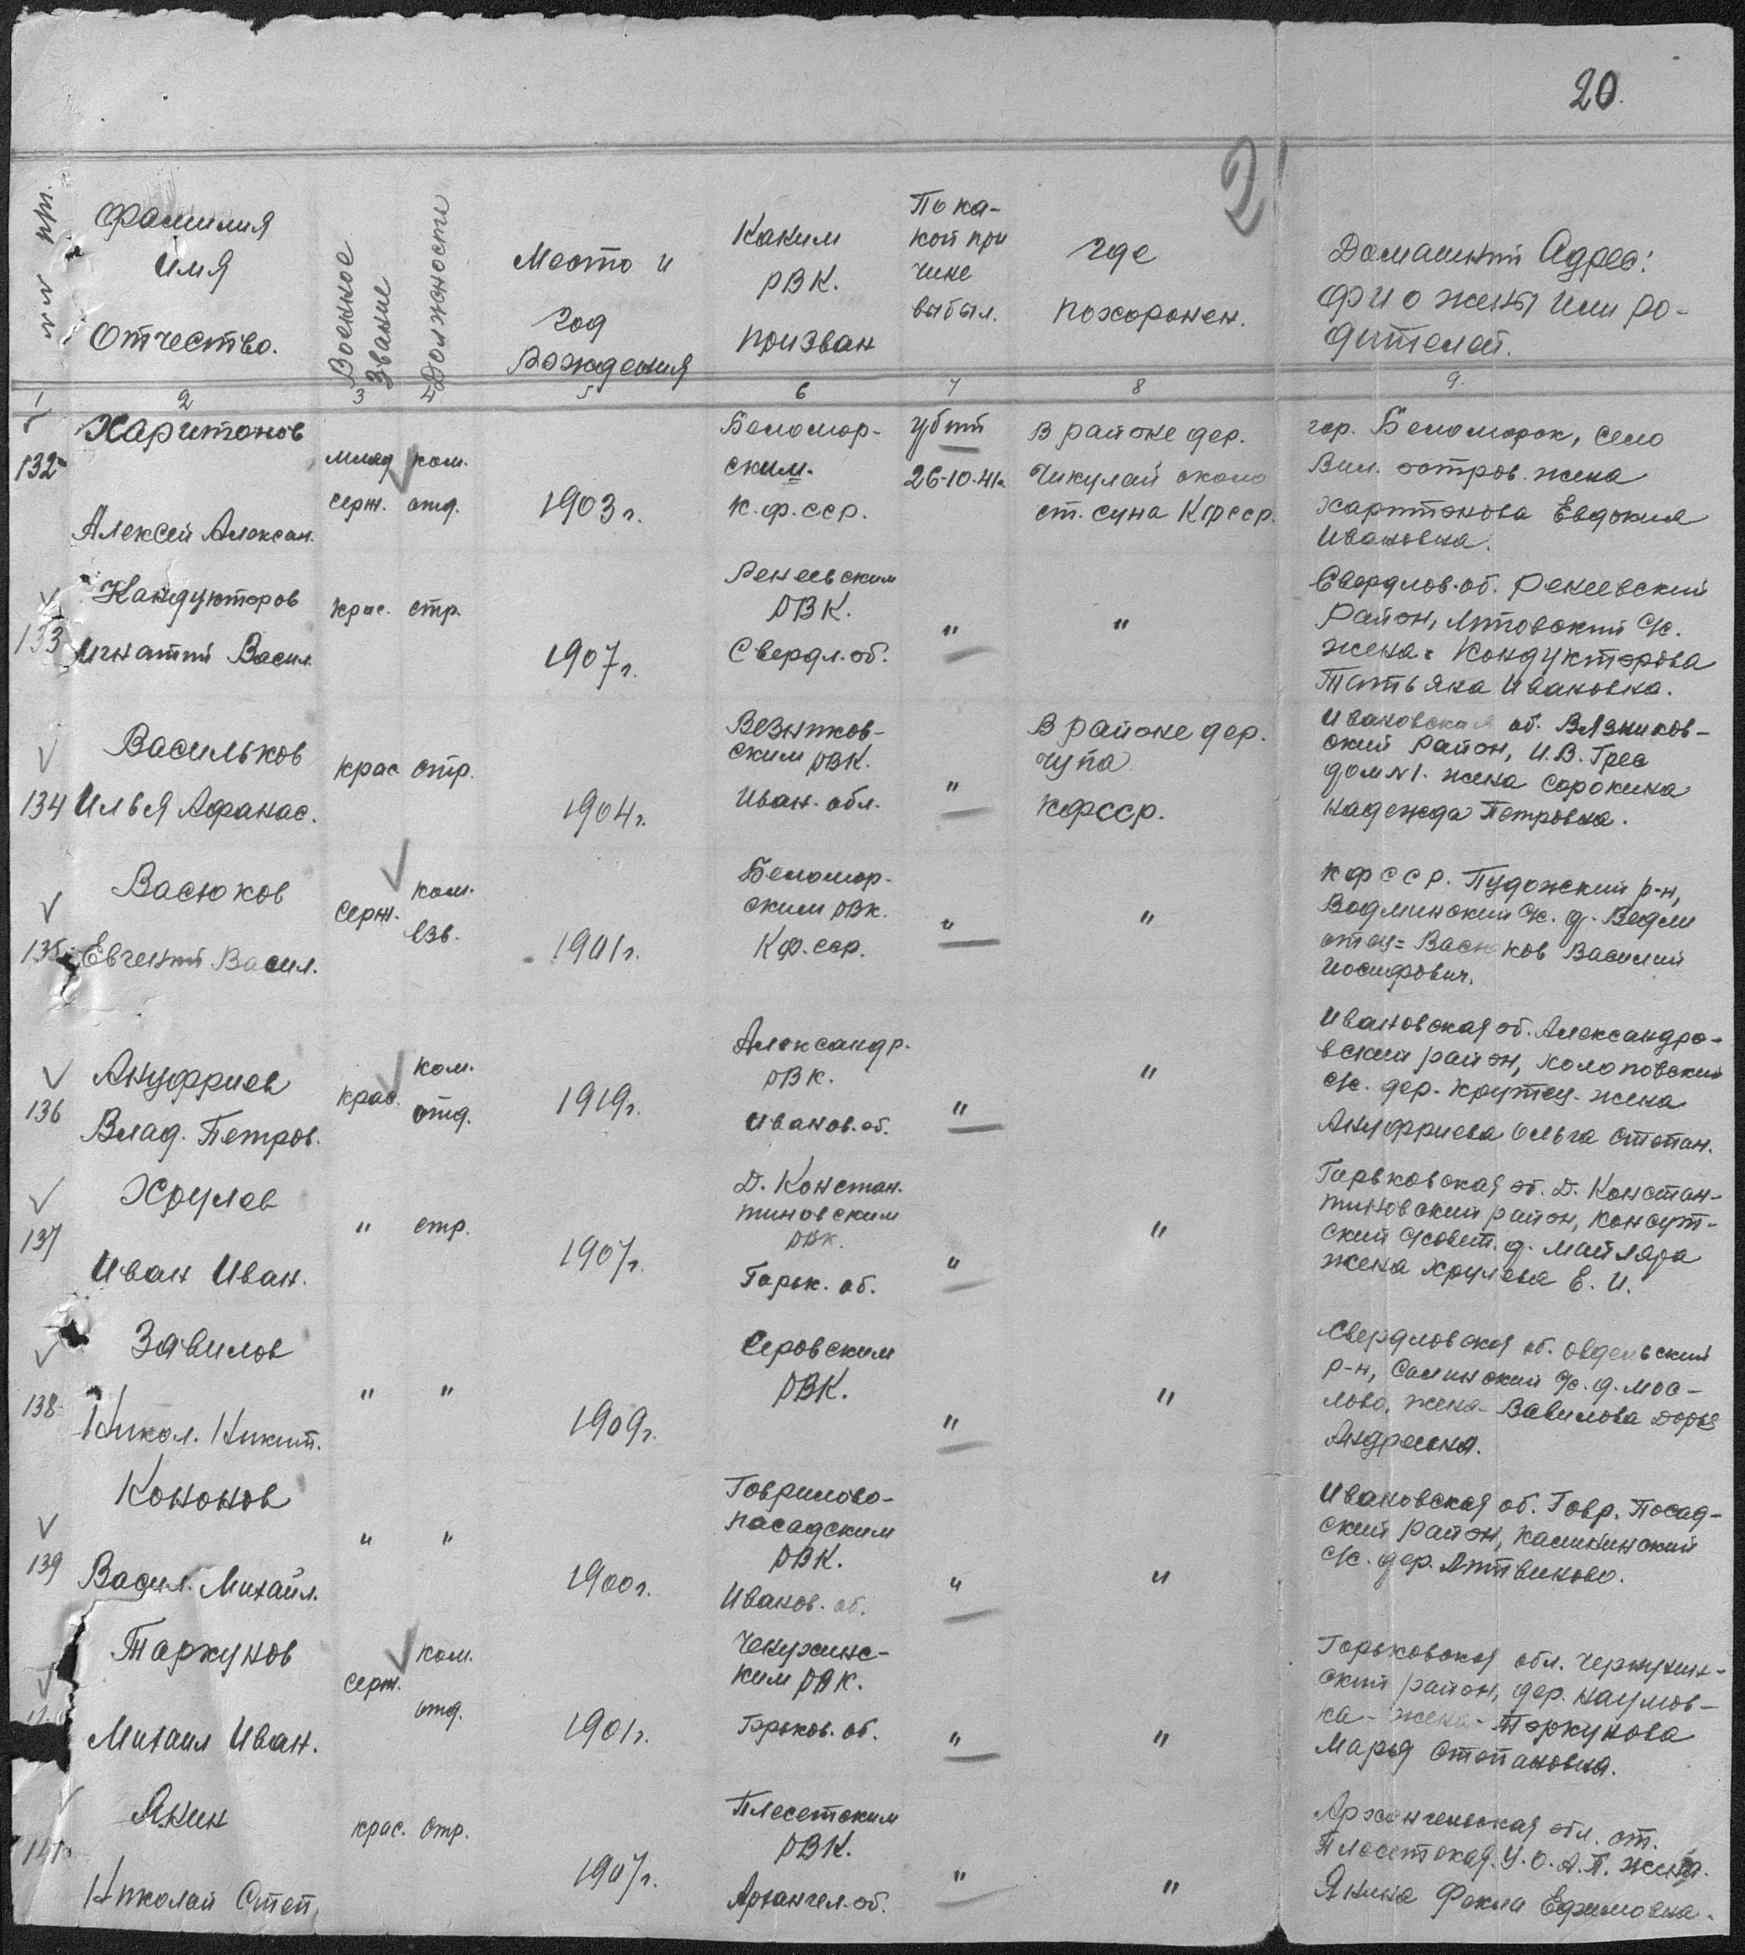 20.
2
№№ п/п.
Фамилия
Имя
Отчество.
Военное
Звание
Должность
Место и
Год
Рождения
Каким
РВК.
призван
По ка-
кой при
чине
выбыл.
где
похоронен.
Домашний Адрес:
ФИО жены или ро-
дителей.
1 2 3 4 5 6 7 8 9.
132
Харитонов
Алексей Алексан.
млад
серж.
ком.
отд.
1903 г.
Беломор-
ским.
К.ф.сср.
убит
26-10-41г.
В районе дер.
Чикулай около
ст. суна Кфсср.
гор. Беломорск, село
Вил. остров. жена
Харитонова Евдокия
Ивановна.
133
Кандукторов
Игнатий Васил.
крас. стр.
1907 г.
Режевским
РВК.
Свердл. об.
"
"
Свердлов. об. Режевский
Район, Липовский с/с.
жена. Кондукторова
Татьяна Ивановна.
134
Васильков
Илья Афанас.
крас стр.
1904 г.
Везников-
ским РВК.
Иван. обл.
"
В районе дер.
чупа
кфсср.
Ивановская об. Вязников-
ский район, И.В. Грес
дом №1. жена Сорокина
надежда Петровна.
135
Васюков
Евгений Васил.
Серж.
ком.
взв.
1901 г.
Беломор-
ским РВК.
Кф.сср.
"
"
КФССР. Пудожский р-н,
Водлинский с/с. д. Водли
отец = Васюков Василий
Иосифович.
136
Ануфриев
Влад. Петров.
крас.
ком.
отд.
1919 г.
Александр.
РВК.
Иванов. об.
"
"
Ивановская об. Александро-
вский район, холоповский
с/с. дер. крутец. жена
Ануфриева Ольга Степан.
137
Хрулев
Иван Иван.
" стр.
1907 г.
Д. Констан.
тиновским
РВК.
Горьк. об.
"
"
Горьковская об. Д. Констан-
тиновский район,
ский с/совет. д.
жена Хрулева Е. И.
138
Завилов
Никол. Никит.
" "
1909 г.
Серовским
РВК.
"
"
Свердловская об.
р-н, с/с. д. Мос-
лово, жена - Вавилова Дарья
Андреевна.
139
Кононов
Васил. Михайл.
" "
1900 г.
Говрилово-
пасадским
РВК.
Иванов. об.
"
"
Ивановская об. Говр. Посад-
ский район, Калининский
с/с. дер. Литвиново.
Таркунов
Михаил Иван.
серж.
ком.
отд.
1901 г.
ким РВК.
Горьков. об.
"
"
Горьковская обл.
ский район, дер. Наумов-
ка - жена - Торкунова
Марья Степановна.
141
Янин
Николай Степ.
крас. стр.
1907 г.
Плесетским
РВК.
Архангел. об.
"
"
Архангельская обл. ст.
Плесетская. У.О.А.П. жена.
Янина Фокла Ефимовна.